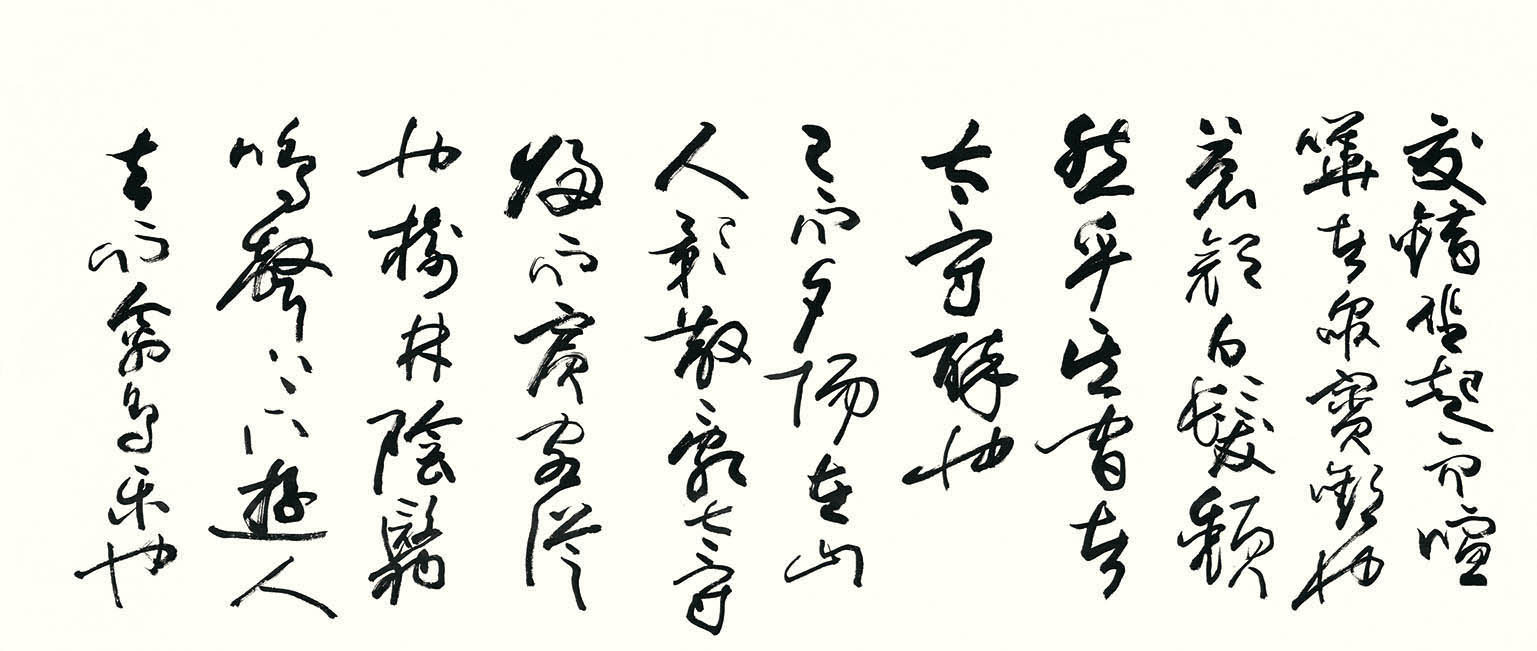 交錯坐起而喧
嘩者衆賓歡也
蒼顔白髮頹
然乎其間者
太守醉也
已而夕陽在山
人影散亂太守
歸而賓客從
也樹林陰翳
鳴聲上下遊人
去而禽鳥樂也